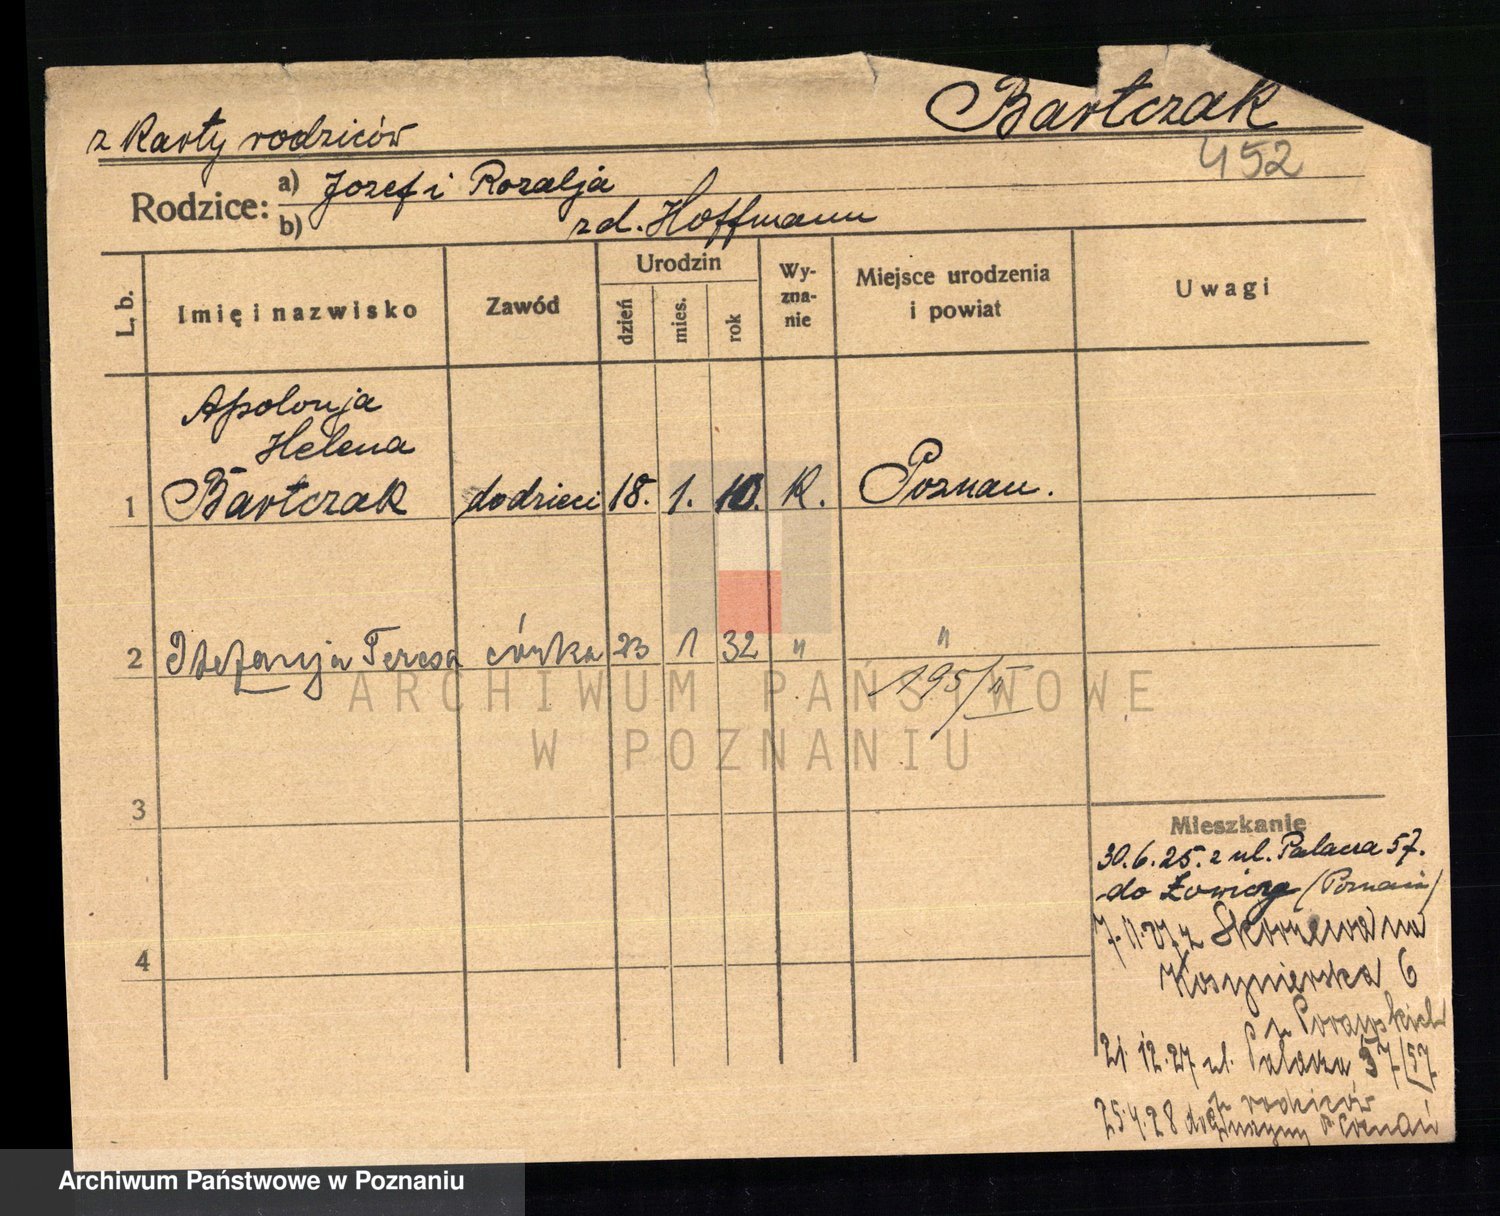 Bartczak
z Karty rodziców
452
Rodzice: a) Jozef i Rozalja
b) zd. Hoffmann
L. b.
Imię i nazwisko
Zawód
Urodzin
dzień
mies.
rok
Wy-
zna-
nie
Miejsce urodzenia
i powiat
Uwagi
Apolonja
Helena
1 Bartczak do dzieci 18. 1. 10. K. Poznan.
2 Stefanja Teresa córka 23 1 32 " "
195/II
ARCHIWUM PAŃSTWOWE
W POZNANIU
3
Mieszkanie
30.6.25. z ul. Palacza 57.
do (Poznań)
4
z Skórzewa na
Kosynierska 6
21.12.27 ul. Palacza 57/57
z rodziców
25.4.28 do Poznań
Archiwum Państwowe w Poznaniu